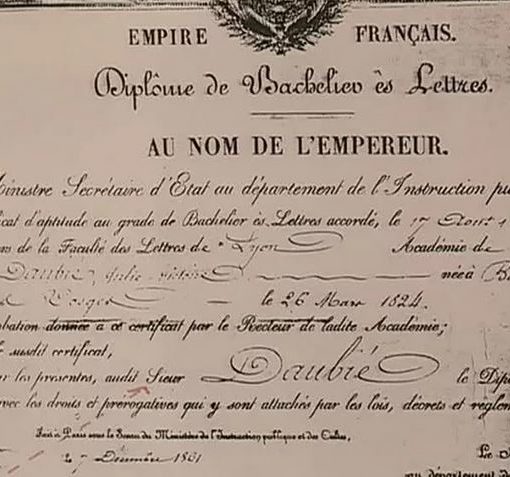 EMPIRE FRANÇAIS.
Diplôme de Bachelier ès Lettres.
AU NOM DE L'EMPEREUR.
Ministre Secrétaire d'Etat au département de l'Instruction pu
icat d'aptitude au grade de Bachelier ès-Lettres accordé, le 17 Août 1
rs de la Faculté des Lettres de Lyon Académie de
Daubié, Julie Victoire née à B
Vosges le 26 Mars 1824.
obation donnée à ce certificat par le Recteur de ladite Académie;
le susdit certificat,
ar les présentes, audit Sieur Daubié le Dipl
avec les droits et prérogatives qui y sont attachés par les lois, décrets et réglem
Fait à Paris sous le Sceau du Ministère de l'Instruction publique et des Cultes,
Décembre 1861
Le
au département de